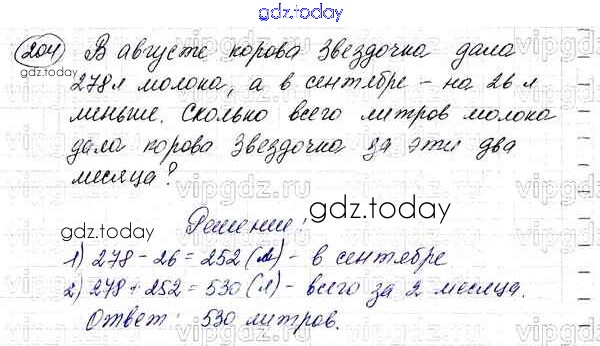 gdz.today
204 В августе корова Звездочка дала
gdz.today
278 л молока, а в сентябре - на 26 л
меньше. Сколько всего литров молока
дала корова Звездочка за эти два
месяца?
Решение:
gdz.today
gdz.today
1) 278 - 26 = 252 (л) - в сентябре
2) 278 + 252 = 530 (л) - всего за 2 месяца.
Ответ: 530 литров.